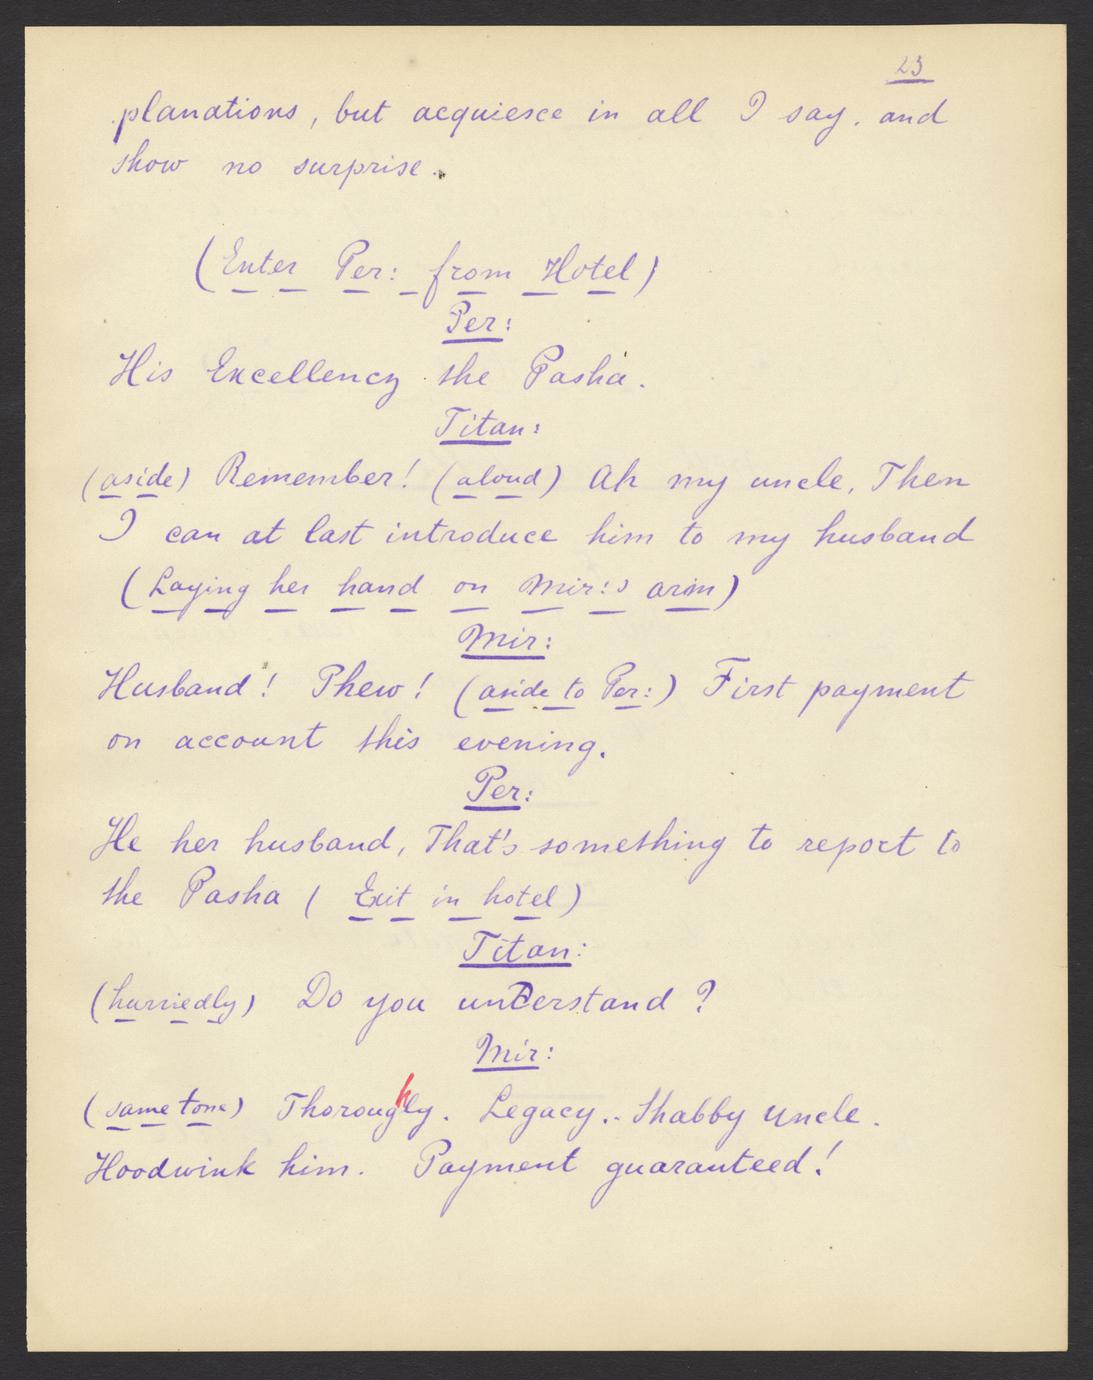 23
planations, but acquiesce in all I say. and
show no surprise.
(Enter Per: from Hotel)
Per:
His Excellency the Pasha.
Titan:
(aside) Remember! (aloud) Ah my uncle, Then
I can at last introduce him to my husband
(Laying her hand on Mir:s arm)
Mir:
Husband! Phew! (aside to Per:) First payment
on account this evening.
Per:
He her husband, That's something to report to
the Pasha ( Exit in hotel)
Titan:
(hurriedly) Do you understand ?
Mir:
(same tone) Thoroughly. Legacy.. Shabby uncle.
Hoodwink him. Payment guaranteed!